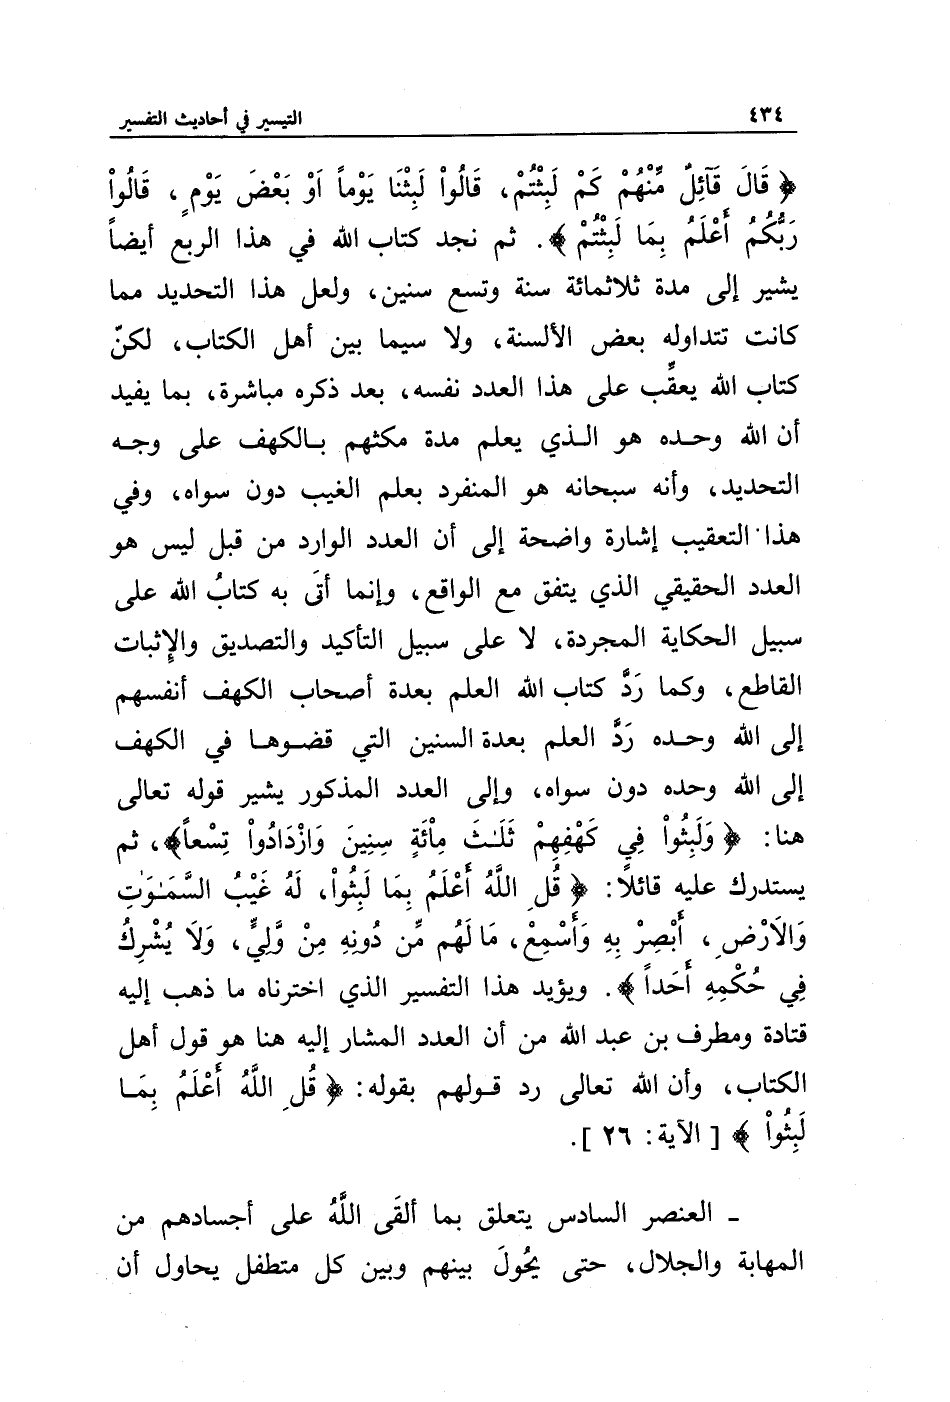 ٤٣٤
التيسير في أحاديث التفسير
﴿ قَالَ قَآئِلٌ مِّنْهُمْ كَمْ لَبِثْتُمْ، قَالُواْ لَبِثْنَا يَوْماً اَوْ بَعْضَ يَوْمٍ، قَالُواْ
رَبُّكُمُ أَعْلَمُ بِمَا لَبِثْتُمْ ﴾. ثم نجد كتاب الله في هذا الربع أيضاً
يشير إلى مدة ثلاثمائة سنة وتسع سنين، ولعل هذا التحديد مما
كانت تتداوله بعض الألسنة، ولا سيما بين أهل الكتاب، لكنّ
كتاب الله يعقِّب على هذا العدد نفسه، بعد ذكره مباشرة، بما يفيد
أن الله وحده هو الذي يعلم مدة مكثهم بالكهف على وجه
التحديد، وأنه سبحانه هو المنفرد بعلم الغيب دون سواه، وفي
هذا التعقيب إشارة واضحة إلى أن العدد الوارد من قبل ليس هو
العدد الحقيقي الذي يتفق مع الواقع، وإنما أتَى به كتابُ الله على
سبيل الحكاية المجردة، لا على سبيل التأكيد والتصديق والإِثبات
القاطع، وكما رَدَّ كتاب الله العلم بعدة أصحاب الكهف أنفسهم
إلى الله وحده رَدَّ العلم بعدة السنين التي قضوها في الكهف
إلى الله وحده دون سواه، وإلى العدد المذكور يشير قوله تعالى
هنا: ﴿ وَلَبِثُواْ فِي كَهْفِهِمْ ثَلَـٰثَ مِاْئَةٍ سِنِينَ وَازْدَادُواْ تِسْعاً﴾، ثم
يستدرك عليه قائلًا: ﴿ قُلِ اللَّهُ أَعْلَمُ بِمَا لَبِثُواْ، لَهُ غَيْبُ السَّمَـٰوَٰتِ
وَالَارْضِ، أَبْصِرْ بِهِ وَأَسْمِعْ، مَا لَهُم مِّن دُونِهِ مِنْ وَّلِيٍّ، وَلَا يُشْرِكُ
فِي حُكْمِهِ أَحَداً ﴾. ويؤيد هذا التفسير الذي اخترناه ما ذهب إليه
قتادة ومطرف بن عبد الله من أن العدد المشار إليه هنا هو قول أهل
الكتاب، وأن الله تعالى رد قولهم بقوله: ﴿ قُلِ اللَّهُ أَعْلَمُ بِمَا
لَبِثُواْ ﴾ [ الآية: ٢٦ ].
ـ العنصر السادس يتعلق بما ألقَى اللَّهُ على أجسادهم من
المهابة والجلال، حتى يحُولَ بينهم وبين كل متطفل يحاول أن